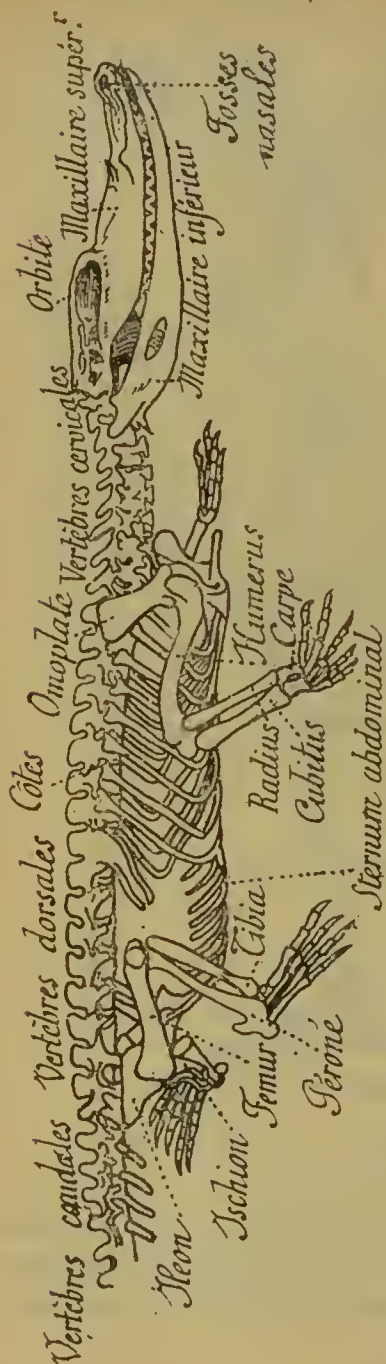 Vertèbres caudales
Vertèbres dorsales
Côtes
Omoplate
Vertèbres cervicales
Orbite
Maxillaire supér.r
Fosses
nasales
Maxillaire inférieur
Humerus
Carpe
Radius
Cubitus
Sternum abdominal
Tibia
Péroné
Femur
Ischion
Ileon